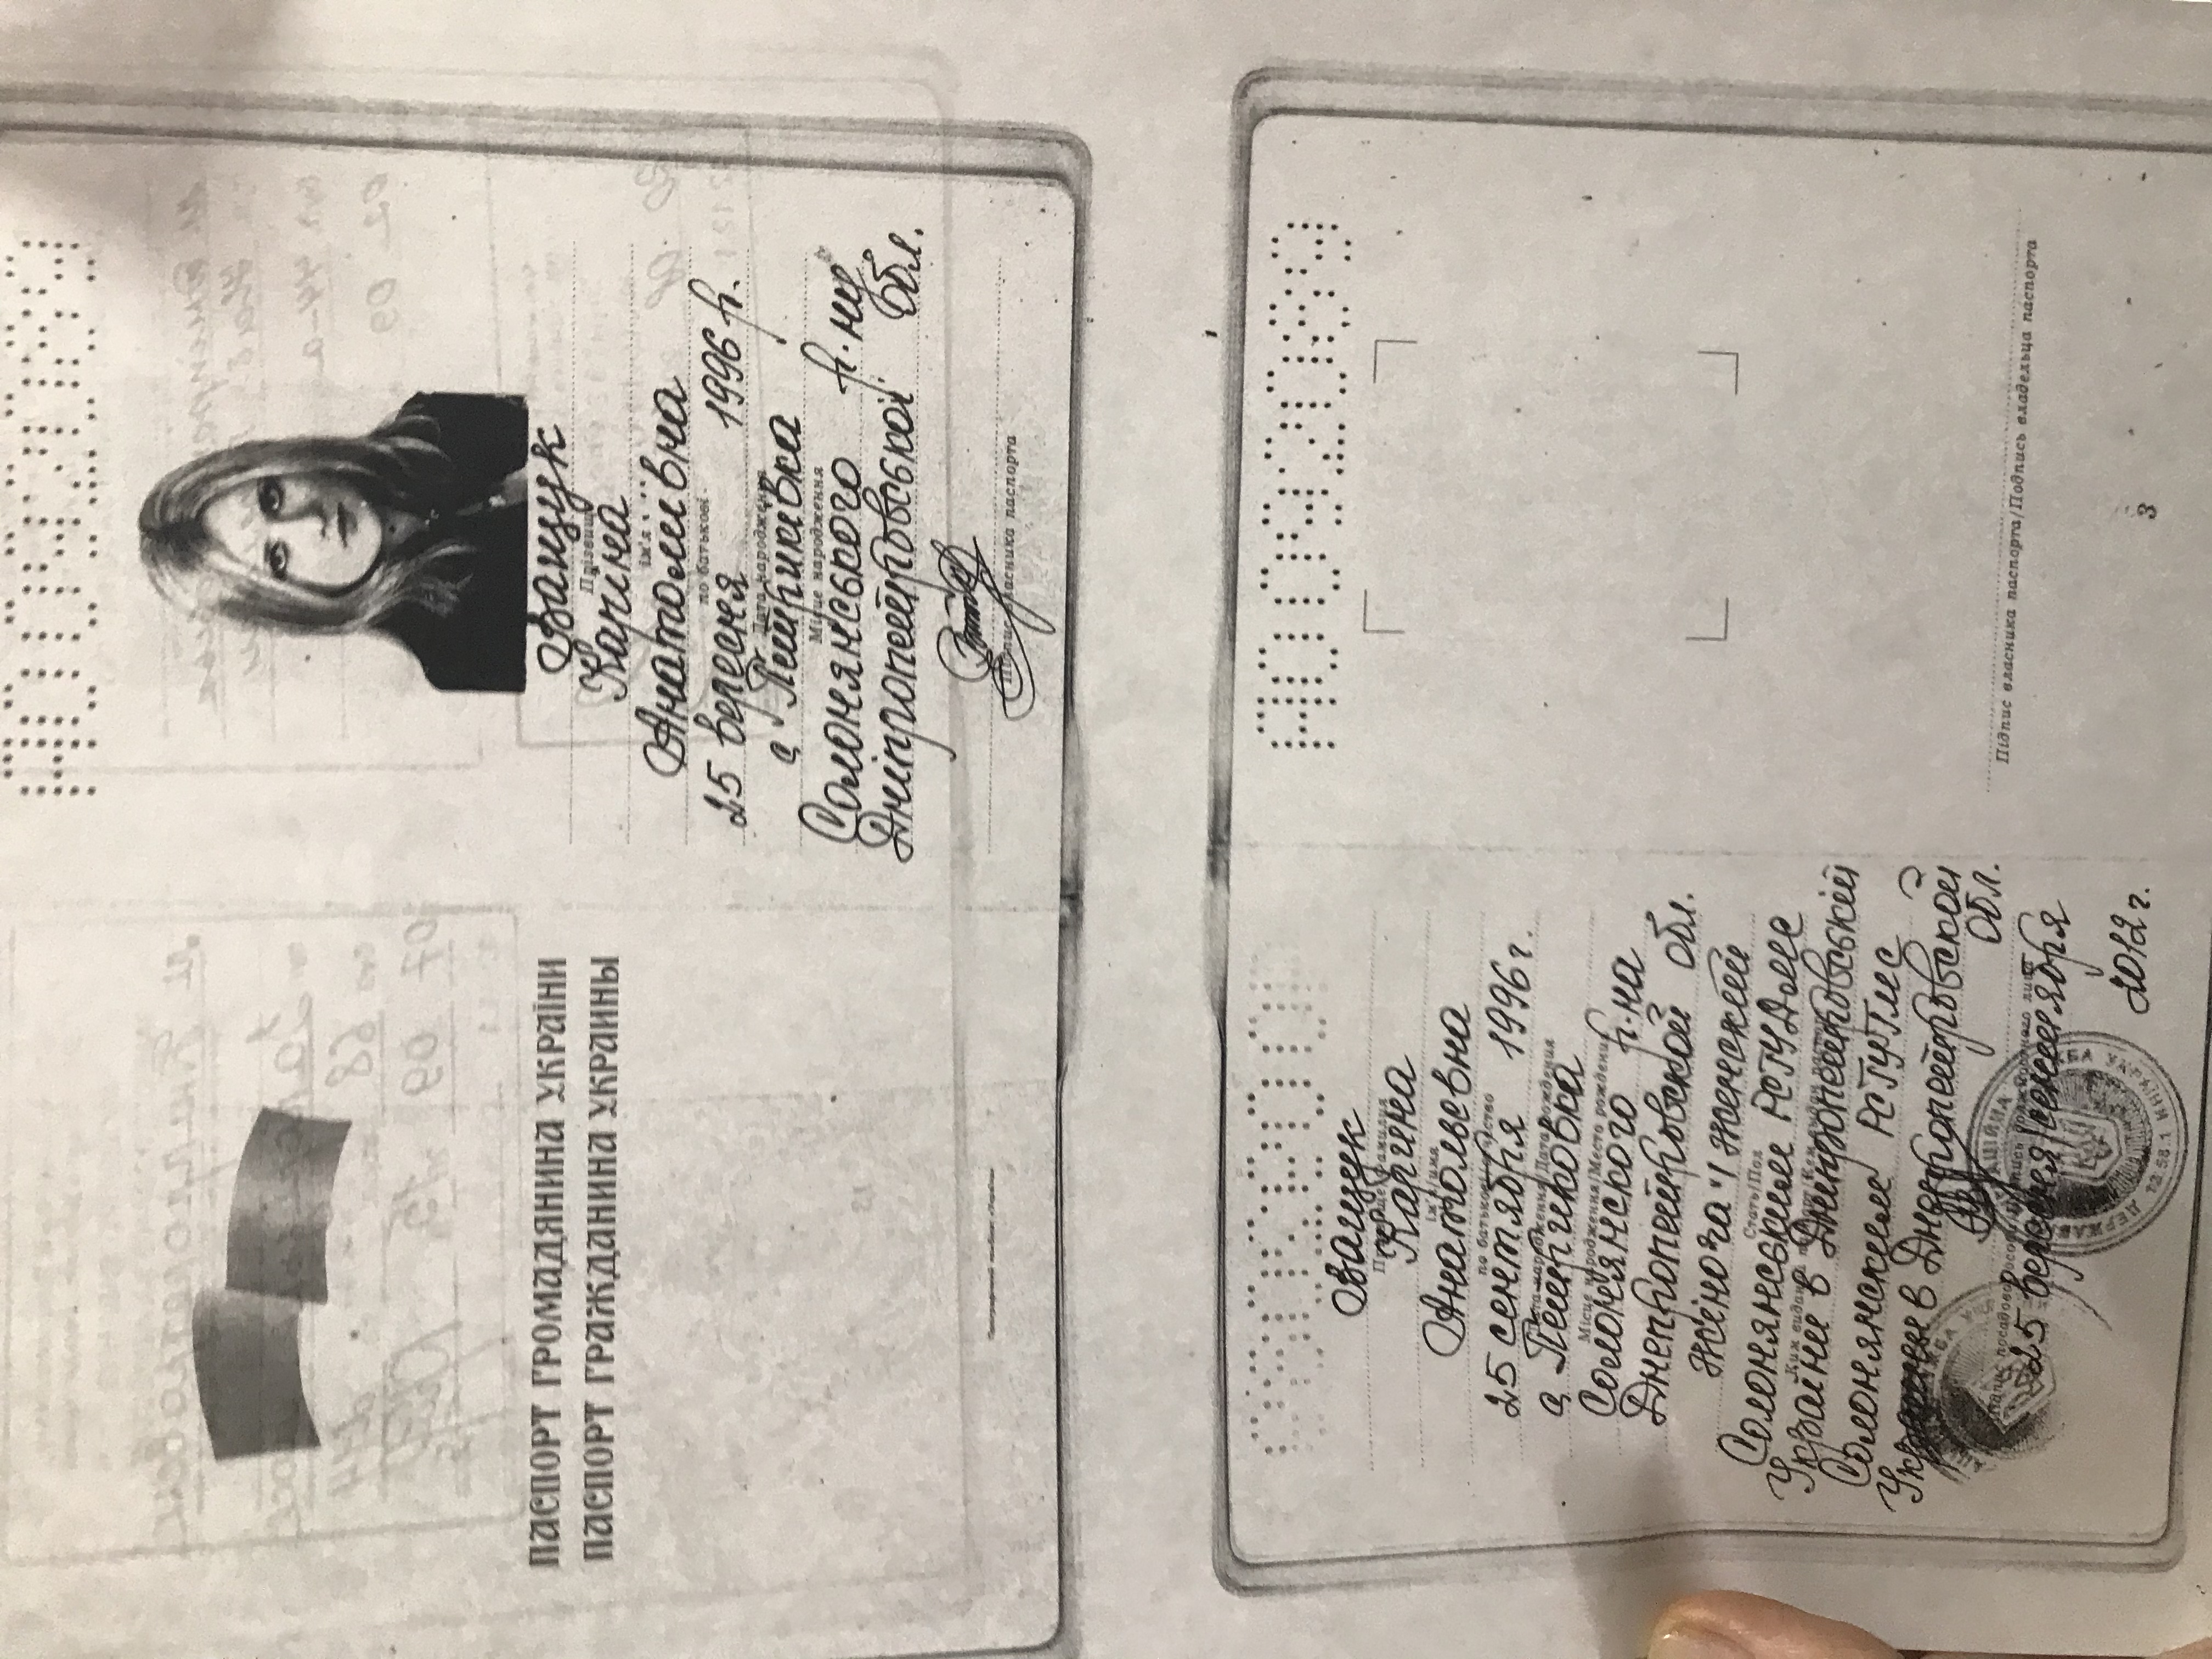 АО092089
ПАСПОРТ ГРОМАДЯНИНА УКРАЇНИ
ПАСПОРТ ГРАЖДАНИНА УКРАИНЫ
Ващук
Прізвище
Каріна
ім'я
Анатоліївна
по батькові
25 вересня 1996 р.
Дата народження
с. Петриківка
Місце народження
Солонянського р-ну
Дніпропетровської обл.
Підпис власника паспорта
Ващук
Прізвище/Фамилия
Карина
ім'я/имя
Анатольевна
по батькові/отчество
25 сентября 1996 г.
Дата народження/Дата рождения
с. Петриковка
Місце народження/Место рождения
Солонянского р-на
Днепропетровской обл.
жіноча / женский
Стать/Пол
Солонянським РСГУДМС
Ким виданий паспорт/Кем выдан паспорт
України в Дніпропетровській
Солонянским РСГУГМС
Украины в Днепропетровской
обл.
Підпис посадової особи/Подпись должностного лица
25 вересня/сентября
2012 г.
АО092089
Підпис власника паспорта/Подпись владельца паспорта
3